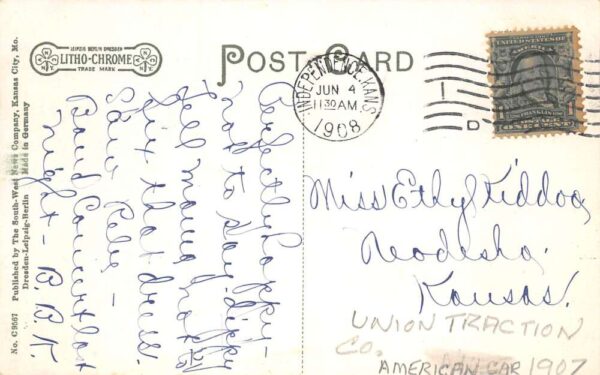 LEIPZIG BERLIN DRESDEN
LITHO-CHROME
TRADE MARK
POST CARD
INDEPENDENCE, KANS.
JUN 4
11 30 AM
1908
1
D
UNITED STATES OF AMERICA
FRANKLIN
ONE CENT
No. C9567 Published by The South-West News Company, Kansas City, Mo.
Dresden-Leipzig-Berlin Made in Germany
Perfectly happy—
not to say dippy
Tell mama not to
fix that dress.
Band Concert last
night — B.B.K.
Miss Ethyl Kiddoo,
Neodesha.
Kansas.
UNION TRACTION
CO.
AMERICAN CAR 1907